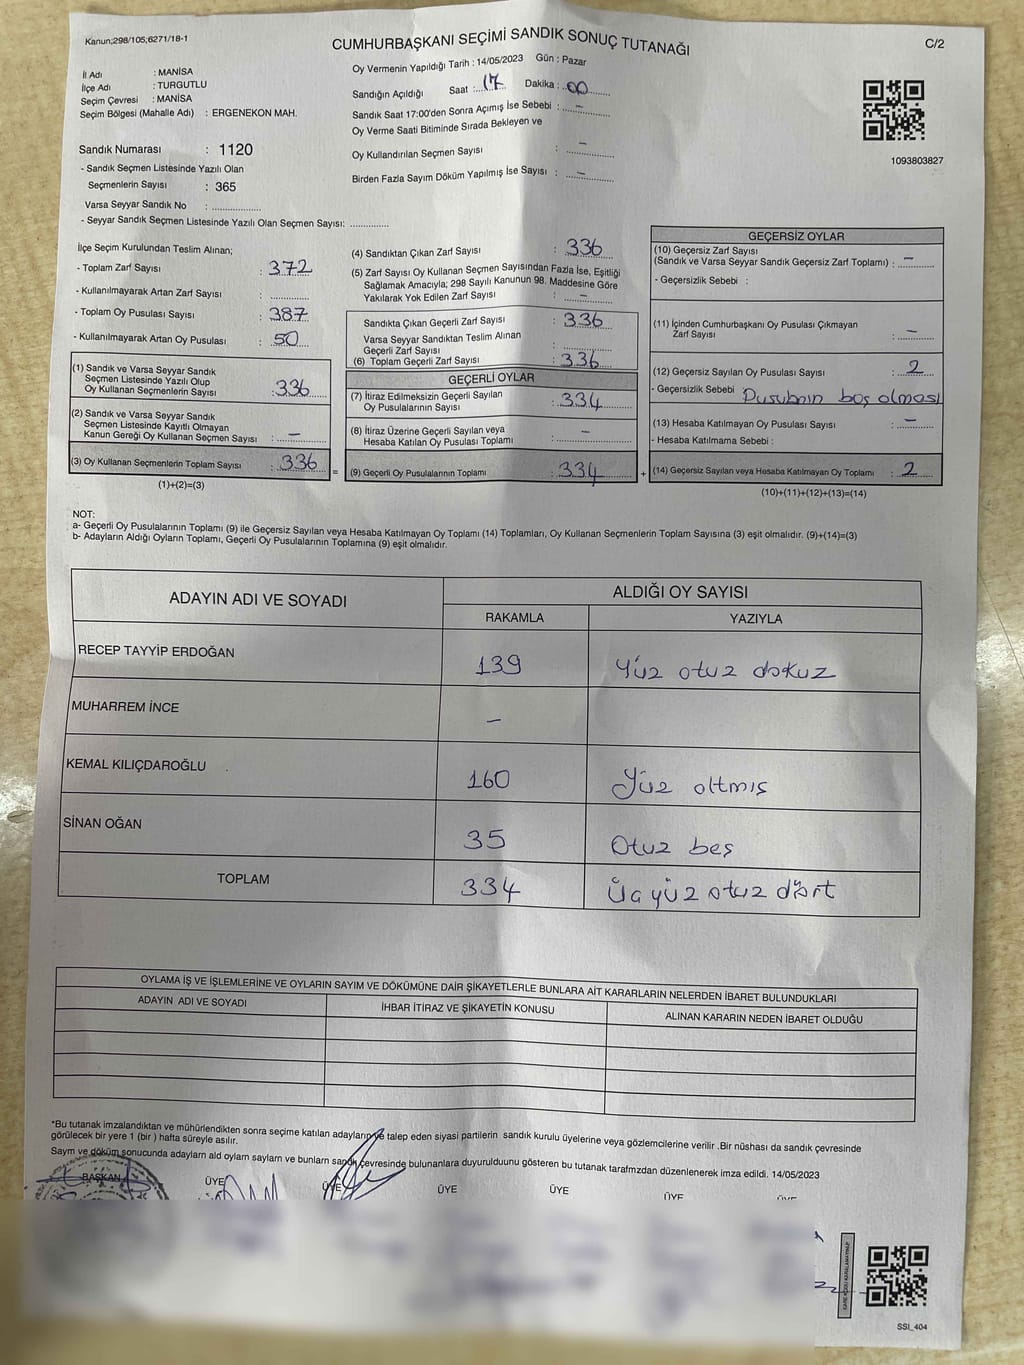 Kanun;298/105;6271/18-1
CUMHURBAŞKANI SEÇİMİ SANDIK SONUÇ TUTANAĞI
C/2
İl Adı : MANİSA
İlçe Adı : TURGUTLU
Seçim Çevresi : MANİSA
Seçim Bölgesi (Mahalle Adı) : ERGENEKON MAH.
Sandık Numarası : 1120
- Sandık Seçmen Listesinde Yazılı Olan
Seçmenlerin Sayısı : 365
Varsa Seyyar Sandık No : ..............
- Seyyar Sandık Seçmen Listesinde Yazılı Olan Seçmen Sayısı: ............
Oy Vermenin Yapıldığı Tarih : 14/05/2023 Gün : Pazar
Sandığın Açıldığı Saat : 17 Dakika : 00
Sandık Saat 17:00'den Sonra Açımış İse Sebebi : -
Oy Verme Saati Bitiminde Sırada Bekleyen ve
Oy Kullandırılan Seçmen Sayısı : -
Birden Fazla Sayım Döküm Yapılmış İse Sayısı : -
1093803827
İlçe Seçim Kurulundan Teslim Alınan;
- Toplam Zarf Sayısı : 372
- Kullanılmayarak Artan Zarf Sayısı : ............
- Toplam Oy Pusulası Sayısı : 387
- Kullanılmayarak Artan Oy Pusulası : 50
(1) Sandık ve Varsa Seyyar Sandık
Seçmen Listesinde Yazılı Olup
Oy Kullanan Seçmenlerin Sayısı : 336
(2) Sandık ve Varsa Seyyar Sandık
Seçmen Listesinde Kayıtlı Olmayan
Kanun Gereği Oy Kullanan Seçmen Sayısı : -
(3) Oy Kullanan Seçmenlerin Toplam Sayısı : 336
(1)+(2)=(3)
(4) Sandıktan Çıkan Zarf Sayısı : 336
(5) Zarf Sayısı Oy Kullanan Seçmen Sayısından Fazla İse, Eşitliği
Sağlamak Amacıyla; 298 Sayılı Kanunun 98. Maddesine Göre
Yakılarak Yok Edilen Zarf Sayısı : -
Sandıkta Çıkan Geçerli Zarf Sayısı : 336
Varsa Seyyar Sandıktan Teslim Alınan
Geçerli Zarf Sayısı : ............
(6) Toplam Geçerli Zarf Sayısı : 336
GEÇERLİ OYLAR
(7) İtiraz Edilmeksizin Geçerli Sayılan
Oy Pusulalarının Sayısı : 334
(8) İtiraz Üzerine Geçerli Sayılan veya
Hesaba Katılan Oy Pusulası Toplamı : -
= (9) Geçerli Oy Pusulalarının Toplamı : 334 +
GEÇERSİZ OYLAR
(10) Geçersiz Zarf Sayısı
(Sandık ve Varsa Seyyar Sandık Geçersiz Zarf Toplamı) : -
- Geçersizlik Sebebi :
(11) İçinden Cumhurbaşkanı Oy Pusulası Çıkmayan
Zarf Sayısı : -
(12) Geçersiz Sayılan Oy Pusulası Sayısı : 2
- Geçersizlik Sebebi Pusulanın boş olması
(13) Hesaba Katılmayan Oy Pusulası Sayısı : -
- Hesaba Katılmama Sebebi :
(14) Geçersiz Sayılan veya Hesaba Katılmayan Oy Toplamı : 2
(10)+(11)+(12)+(13)=(14)
NOT:
a- Geçerli Oy Pusulalarının Toplamı (9) ile Geçersiz Sayılan veya Hesaba Katılmayan Oy Toplamı (14) Toplamları, Oy Kullanan Seçmenlerin Toplam Sayısına (3) eşit olmalıdır. (9)+(14)=(3)
b- Adayların Aldığı Oyların Toplamı, Geçerli Oy Pusulalarının Toplamına (9) eşit olmalıdır.
ADAYIN ADI VE SOYADI
ALDIĞI OY SAYISI
RAKAMLA YAZIYLA
RECEP TAYYİP ERDOĞAN 139 Yüz otuz dokuz
MUHARREM İNCE -
KEMAL KILIÇDAROĞLU 160 Yüz altmış
SİNAN OĞAN 35 Otuz beş
TOPLAM 334 Üçyüz otuz dört
OYLAMA İŞ VE İŞLEMLERİNE VE OYLARIN SAYIM VE DÖKÜMÜNE DAİR ŞİKAYETLERLE BUNLARA AİT KARARLARIN NELERDEN İBARET BULUNDUKLARI
ADAYIN ADI VE SOYADI İHBAR İTİRAZ VE ŞİKAYETİN KONUSU ALINAN KARARIN NEDEN İBARET OLDUĞU
*Bu tutanak imzalandıktan ve mühürlendikten sonra seçime katılan adayların ve talep eden siyasi partilerin sandık kurulu üyelerine veya gözlemcilerine verilir .Bir nüshası da sandık çevresinde
görülecek bir yere 1 (bir ) hafta süreyle asılır.
Sayım ve döküm sonucunda adayların ald oyların sayların ve bunların sandık çevresinde bulunanlara duyurulduunu gösteren bu tutanak tarafmzdan düzenlenerek imza edildi. 14/05/2023
BAŞKAN ÜYE ÜYE ÜYE ÜYE ÜYE ÜYE
SSI_404